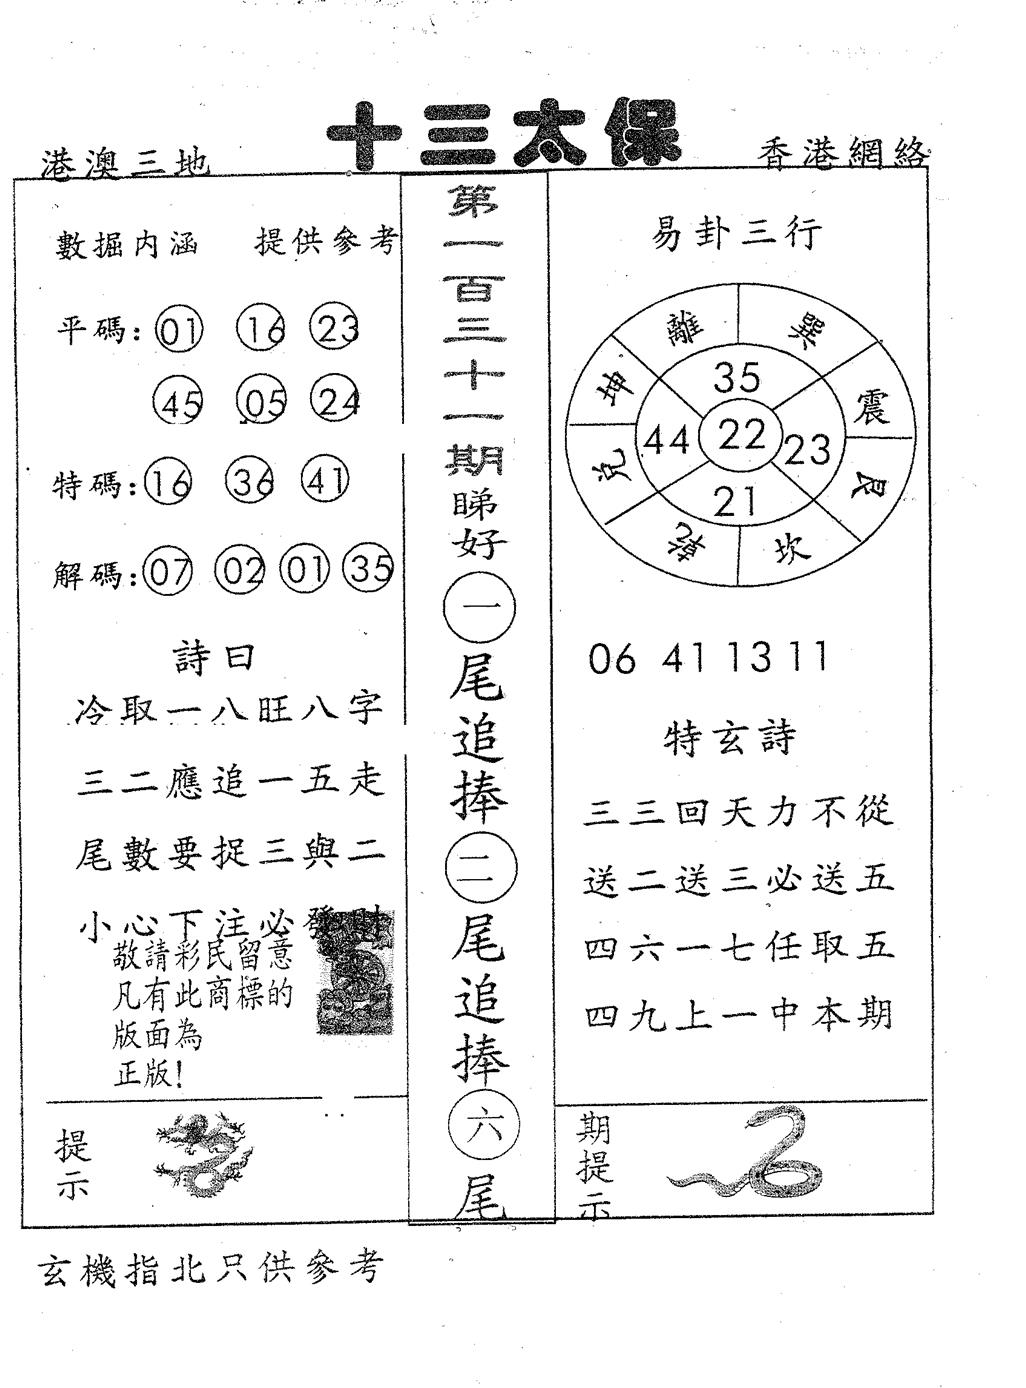 十三太保
港澳三地
香港網絡
數掘内涵 提供參考
平碼: 01 16 23
45 05 24
特碼: 16 36 41
解碼: 07 02 01 35
詩曰
冷取一八旺八字
三二應追一五走
尾數要捉三與二
小心下注必發財
敬請彩民留意
凡有此商標的
版面為
正版!
提示
第一百三十一期睇好一尾追捧二尾追捧六尾
易卦三行
離 巽
坤 震
兌 艮
乾 坎
35
44 22 23
21
06 41 13 11
特玄詩
三三回天力不從
送二送三必送五
四六一七任取五
四九上一中本期
期提示
玄機指北只供參考